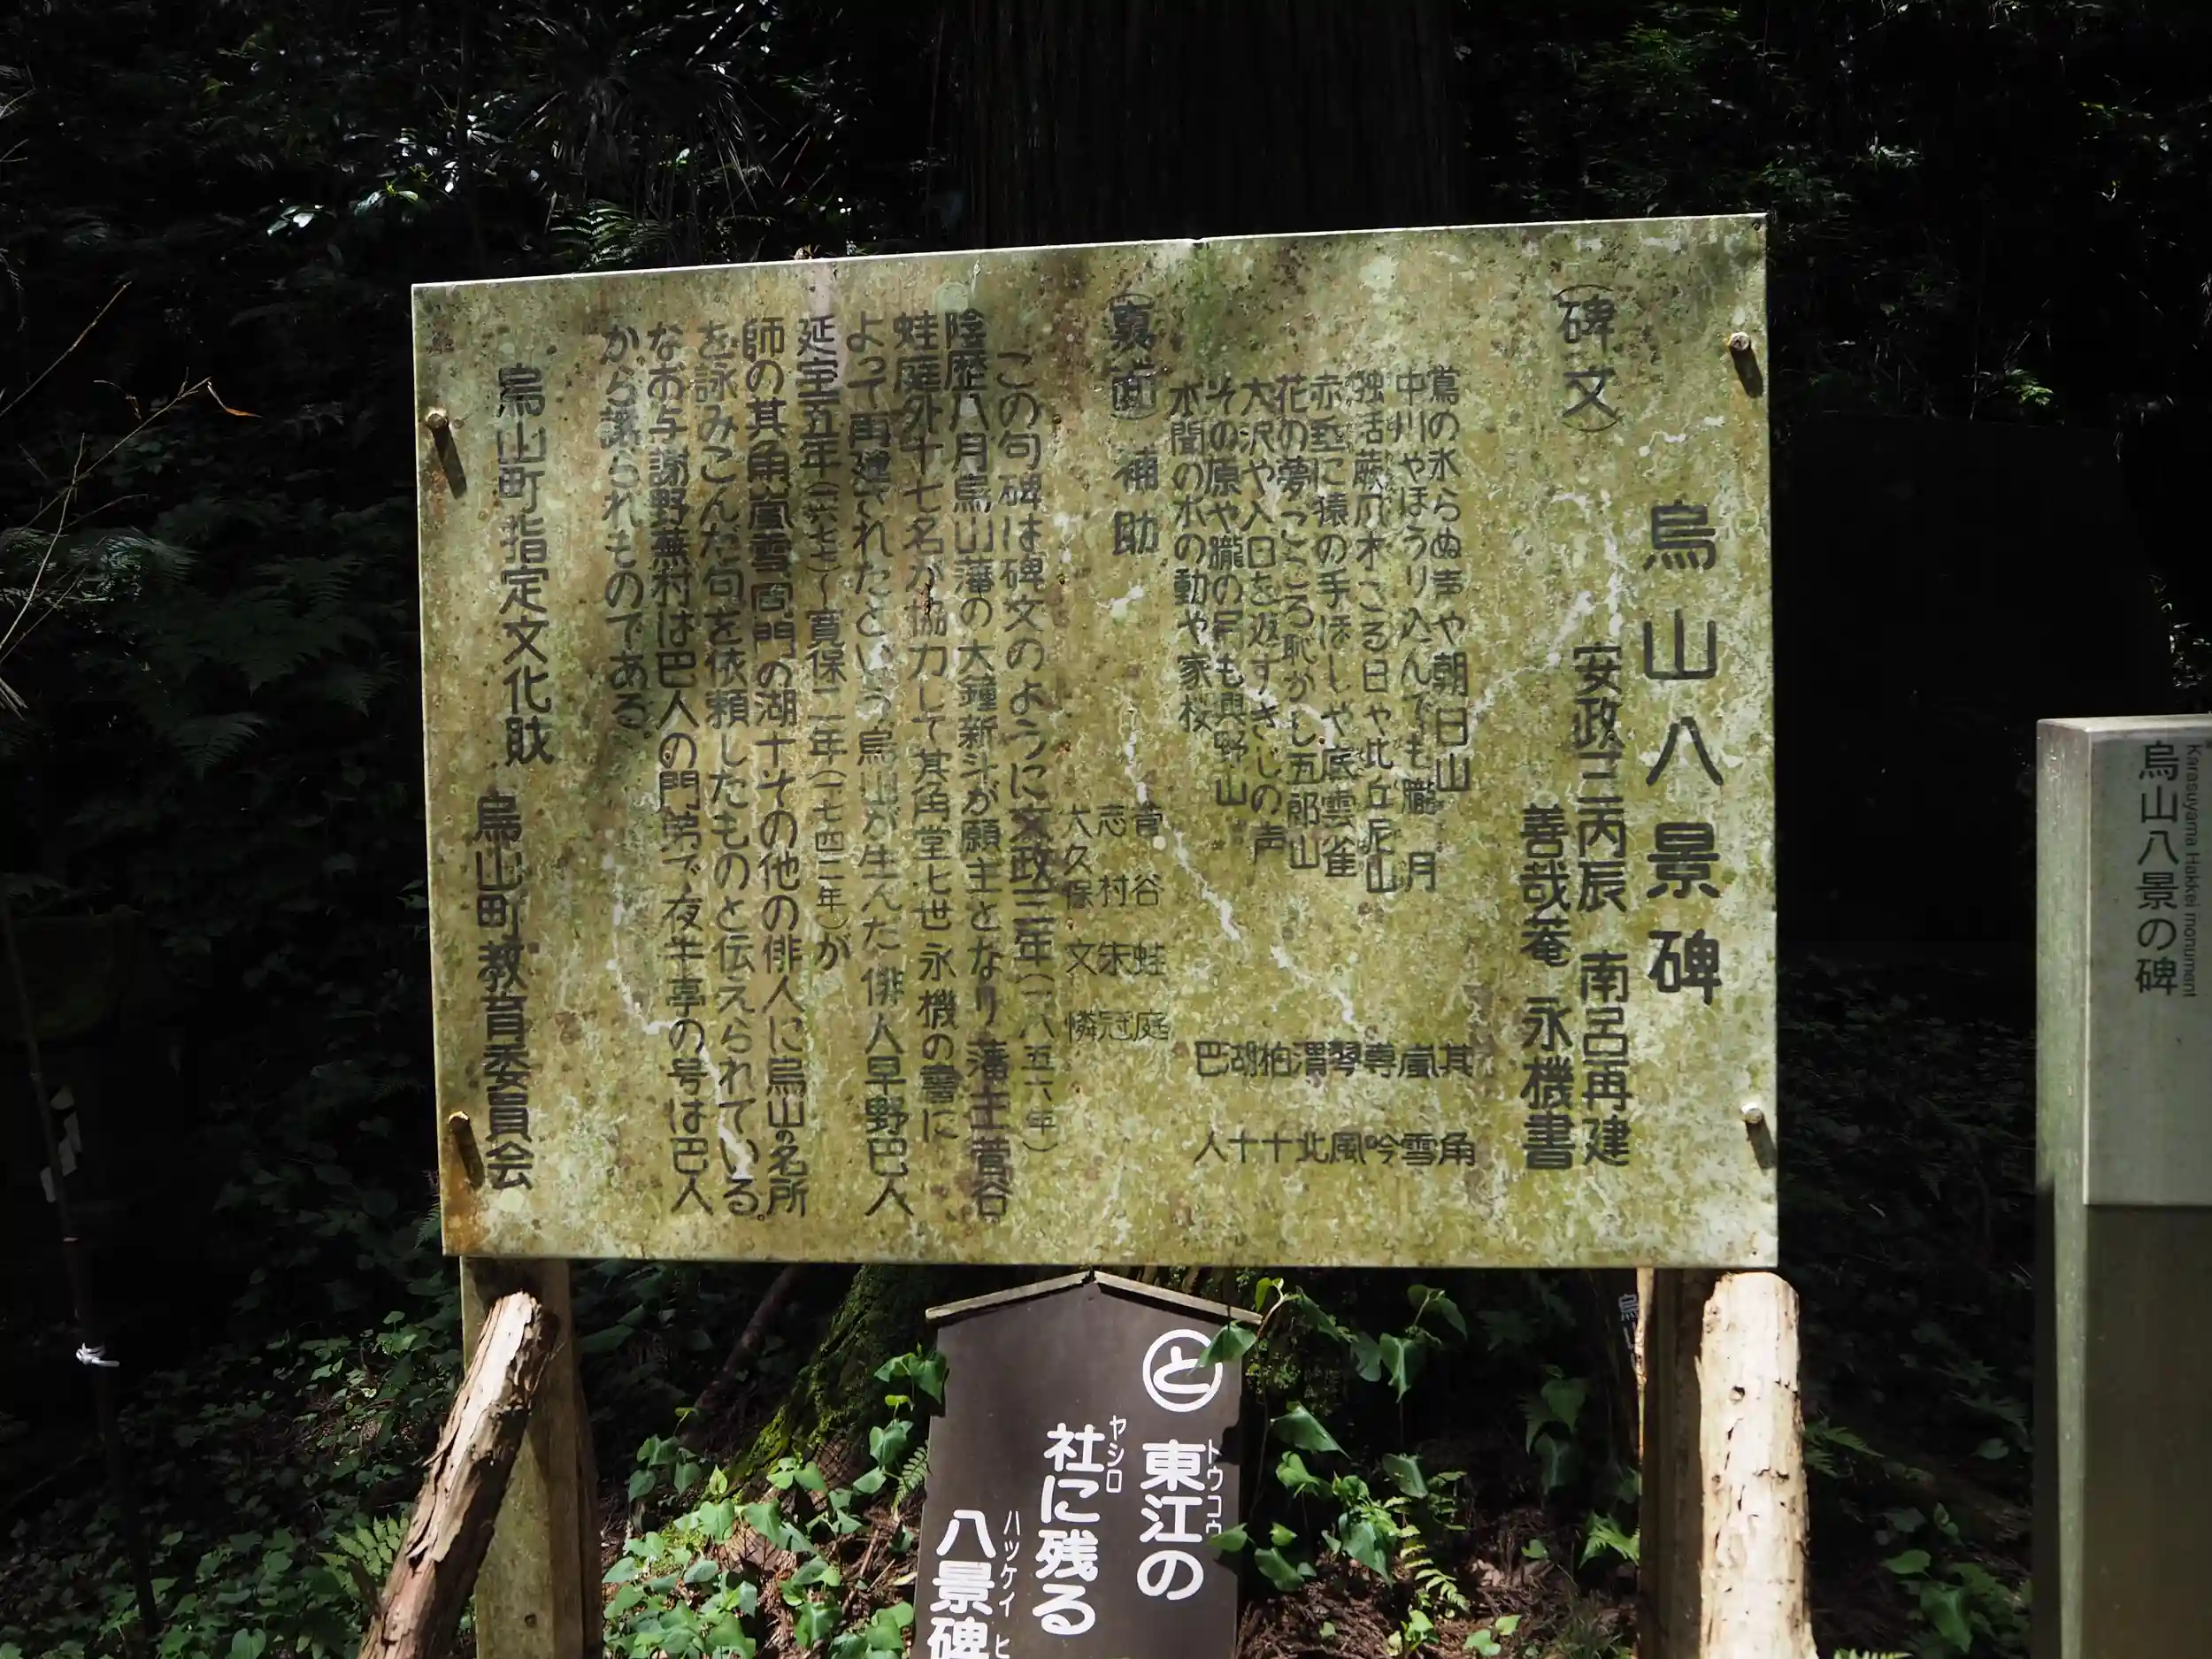 烏山八景碑
安政三丙辰 南呂再建
善哉菴 永機書
(碑文)
蔦の水らぬ声や朝日山 其角
中川やほうり込んでも朧月 嵐雪
独活蕨爪木こる日や比丘尼山 尊吟
赤垂に猿の手ほしや底雲雀 琴風
花の夢こころ恥かし五郎山 渭北
大沢や入日を返すきじの声 柏十
その原や朧の尻も興野山 湖十
水聞の水の動や家桜 巴人
(裏面) 補助
菅谷 蛙庭
志村 朱冠
大久保 文憐
この句碑は碑文のように文政三年(一八五六年)
陰歴八月烏山藩の大鐘新斗が願主となり藩士菅谷
蛙庭外十七名が協力して其角堂七世永機の書に
よって再建されたという烏山が生んだ俳人早野巴人
延宝五年(一六七七)~寛保二年(一七四二年)が
師の其角嵐雪同門の湖十その他の俳人に烏山の名所
を詠みこんだ句を依頼したものと伝えられている。
なお与謝野蕪村は巴人の門弟で夜半亭の号は巴人
から譲られものである
烏山町指定文化財
烏山町教育委員会
烏山八景の碑
Karasuyama Hakkei monument
と 東江の
トウコウ
社に残る
ヤシロ
八景碑
ハッケイヒ